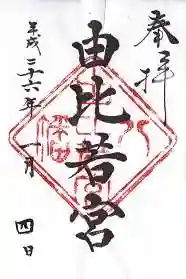 奉拝
由比若宮
平成二十六年一月四日